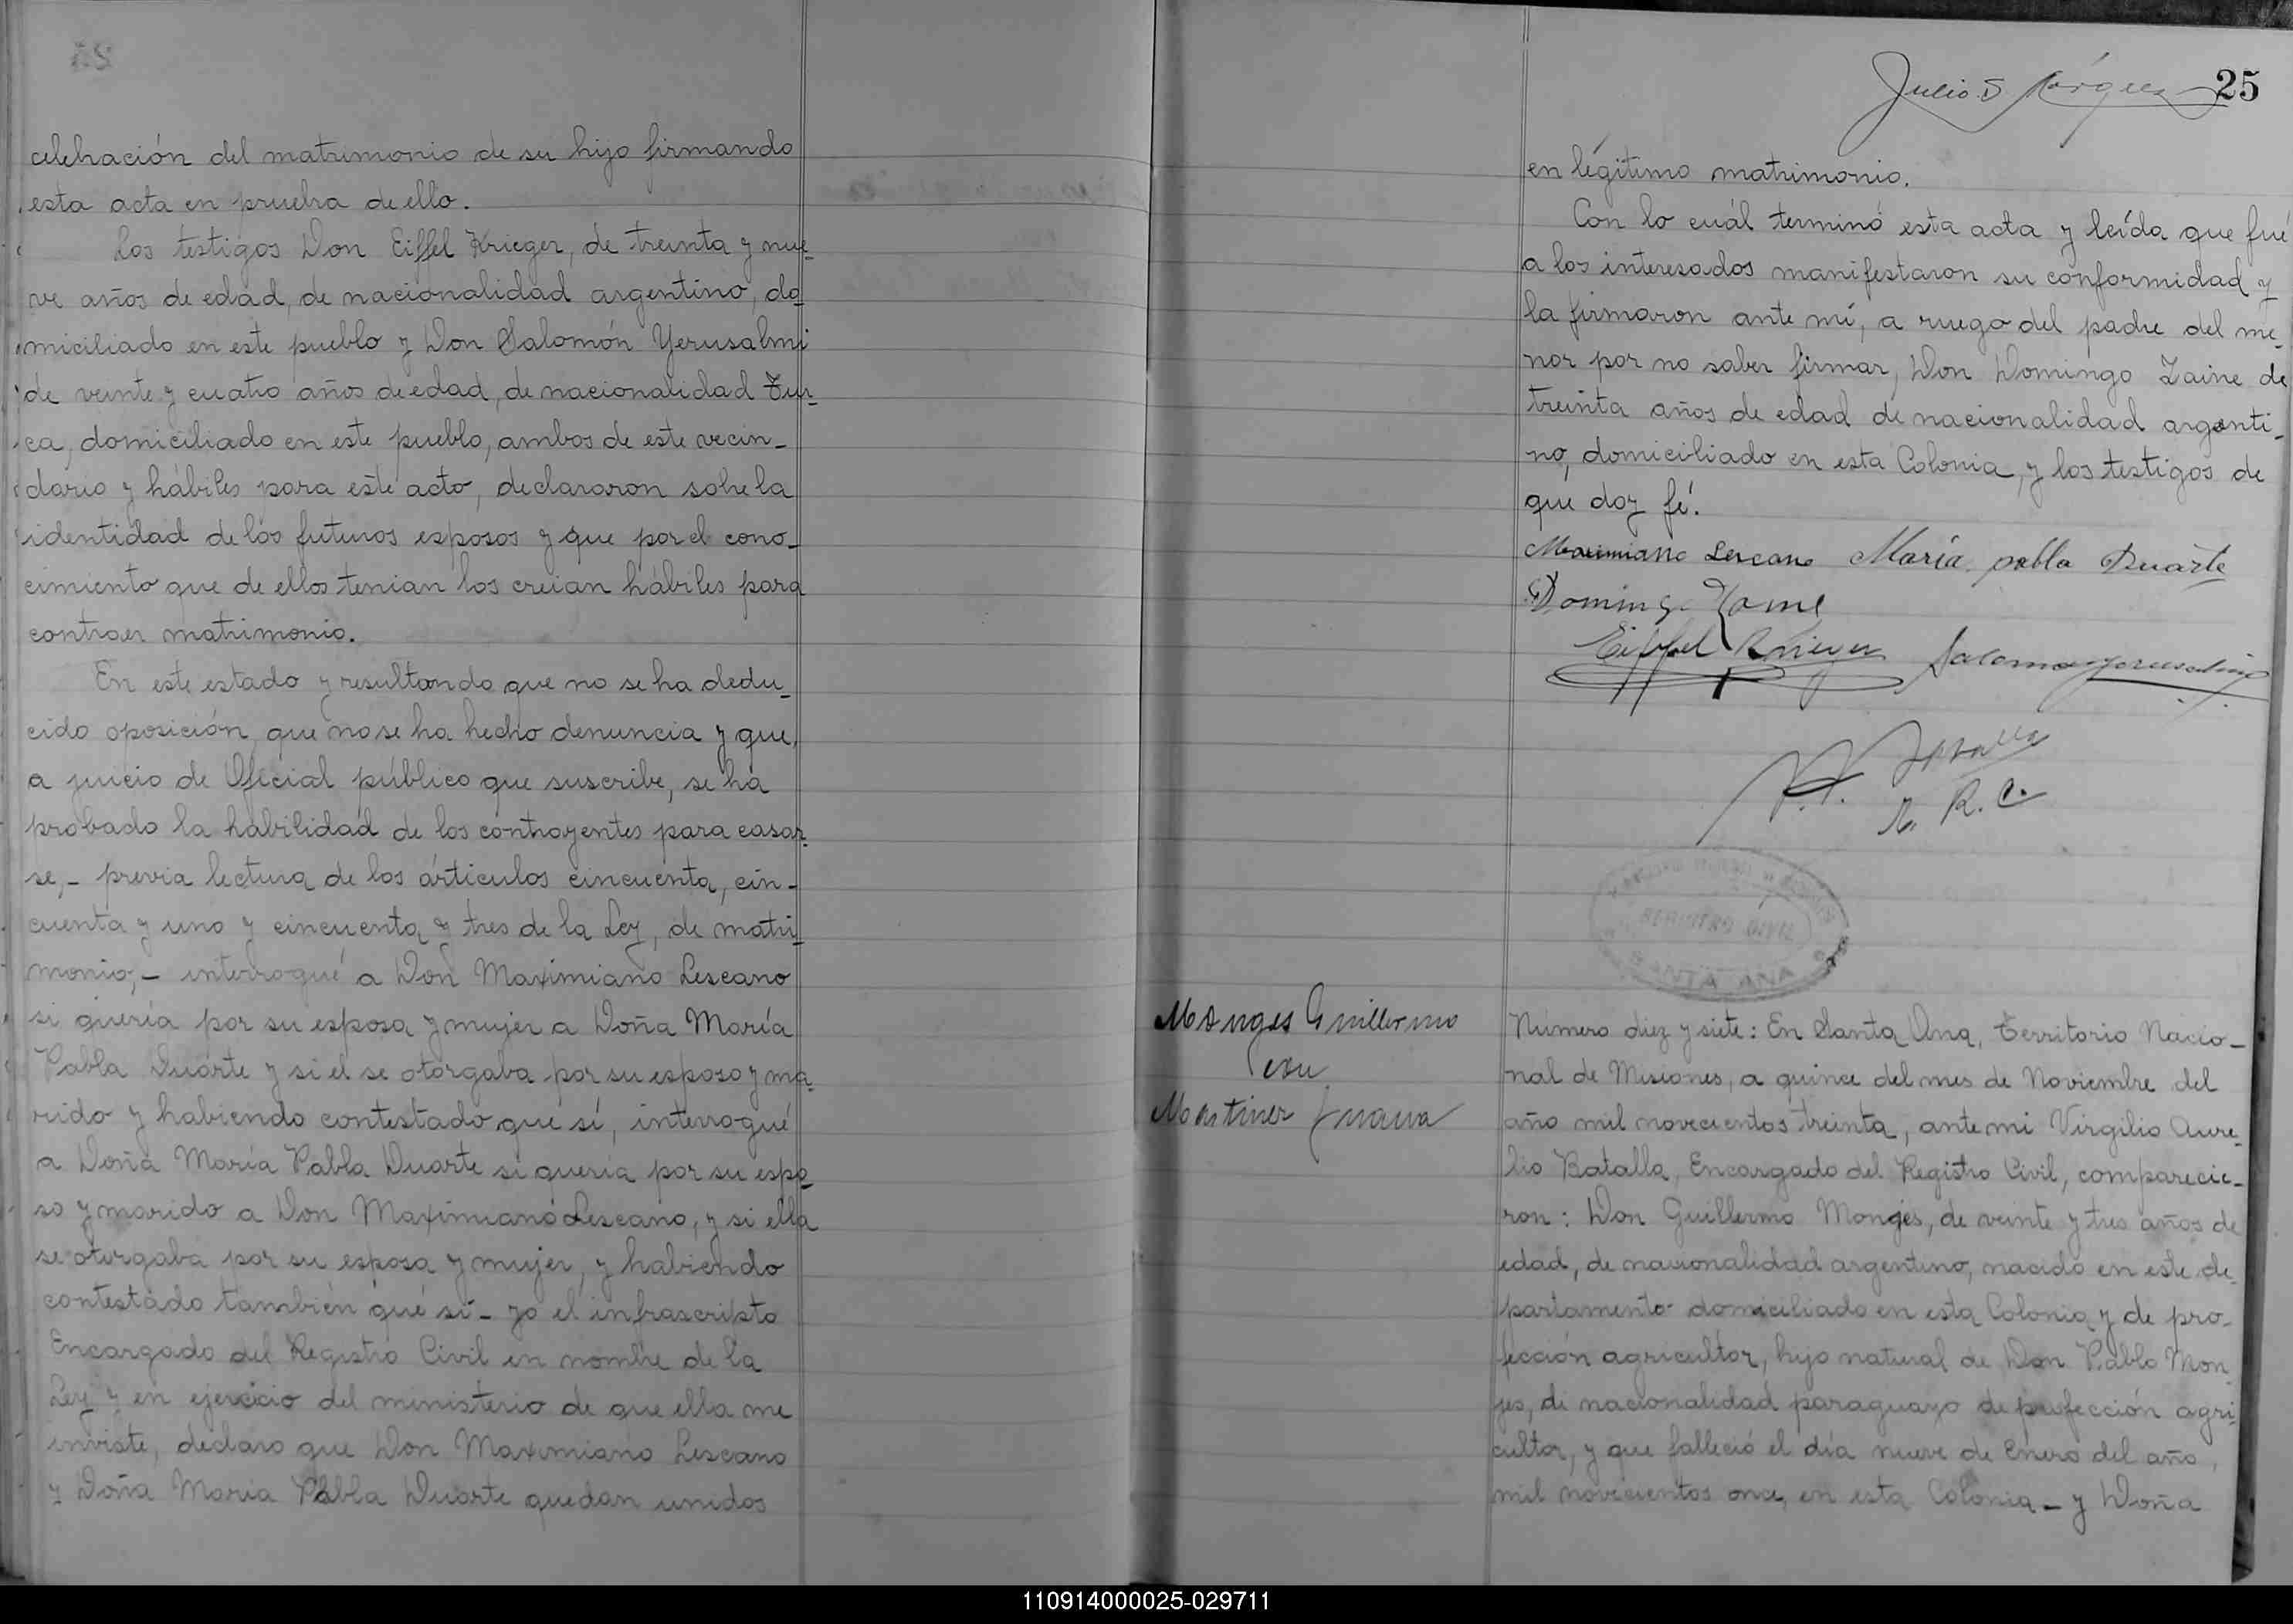 celebración del matrimonio de su hijo firmando
esta acta en prueba de ello.
Los testigos Don Eiffel Krieger, de treinta y nue-
ve años de edad, de nacionalidad argentino, do-
miciliado en este pueblo y Don Salomón Yerusalmi
de veinte y cuatro años de edad, de nacionalidad Tur-
ca, domiciliado en este pueblo, ambos de este vecin-
dario y hábiles para este acto, declararon sobre la
identidad de los futuros esposos y que por el cono-
cimiento que de ellos tenian los creian hábiles para
contraer matrimonio.
En este estado y resultando que no se ha dedu-
cido oposición, que no se ha hecho denuncia y que,
a juicio de Oficial público que suscribe, se ha
probado la habilidad de los contrayentes para casar-
se,- previa lectura de los artículos cincuenta, cin-
cuenta y uno y cincuenta y tres de la Ley, de matri-
monio,- interrogué a Don Maximiano Lescano
si quería por su esposa y mujer a Doña María
Pabla Duarte y si el se otorgaba por su esposo y ma-
rido y habiendo contestado qué sí, interrogué
a Doña María Pabla Duarte si quería por su espo-
so y marido a Don Maximiano Lescano, y si ella
se otorgaba por su esposa y mujer, y habiendo
contestado también qué sí- yo el infrascripto
Encargado del Registro Civil en nombre de la
Ley y en ejercicio del ministerio de que ella me
inviste, declaro que Don Maximiano Lescano
y Doña María Pabla Duarte quedan unidos
Julio S Márquez 25
en legítimo matrimonio.
Con lo cuál terminó esta acta y leída que fue
a los interesados manifestaron su conformidad y
la firmaron ante mí, a ruego del padre del me-
nor por no saber firmar, Don Domingo Zaine de
treinta años de edad de nacionalidad argenti-
no, domiciliado en esta Colonia, y los testigos de
qué doy fé.
Maximiano Lescano María pabla Duarte
Domingo Zaine
Eiffel Krieger Salomon Yerusalmi
E. R. C.
REGISTRO CIVIL
SANTA ANA
Monges Guillermo
con
Martinez Juana
Número diez y siete: En Santa Ana, Territorio Nacio-
nal de Misiones, a quince del mes de Noviembre del
año mil novecientos treinta, ante mi Virgilio Aure-
lio Batalla, Encargado del Registro Civil, comparecie-
ron: Don Guillermo Monges, de veinte y tres años de
edad, de nacionalidad argentino, nacido en este de-
partamento domiciliado en esta Colonia y de pro-
fección agricultor, hijo natural de Don Pablo Mon-
jes, de nacionalidad paraguayo de profección agri-
cultor, y que falleció el día nueve de Enero del año,
mil novecientos once, en esta Colonia- y Doña
110914000025-029711